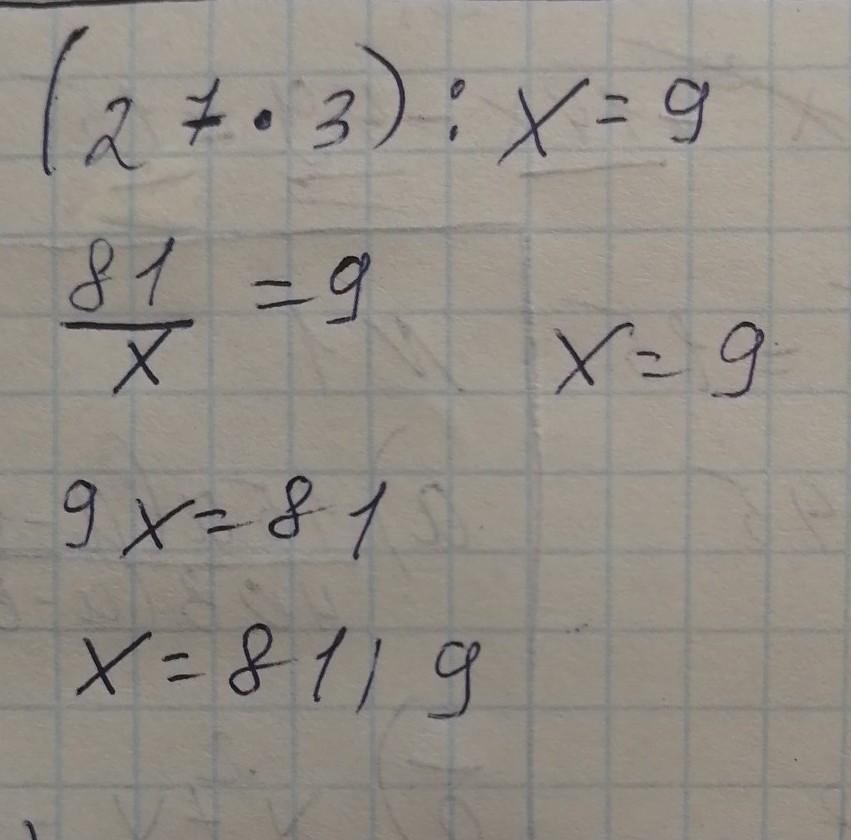 (27·3):x=9
81/x=9
x=9
9x=81
x=81/9